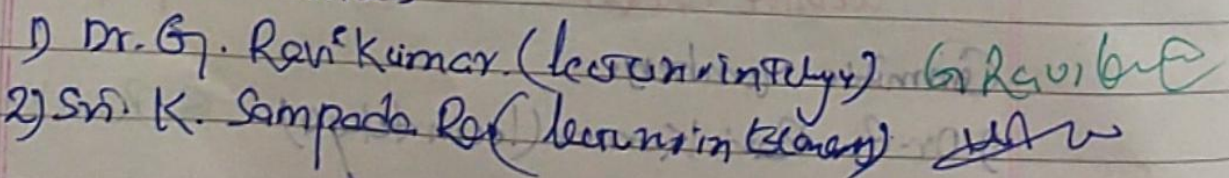 1) Dr. G. Ravi Kumar. (lecturer in Telugu) G. Ravi
2) Sri. K. Sampada Rao (lecturer in